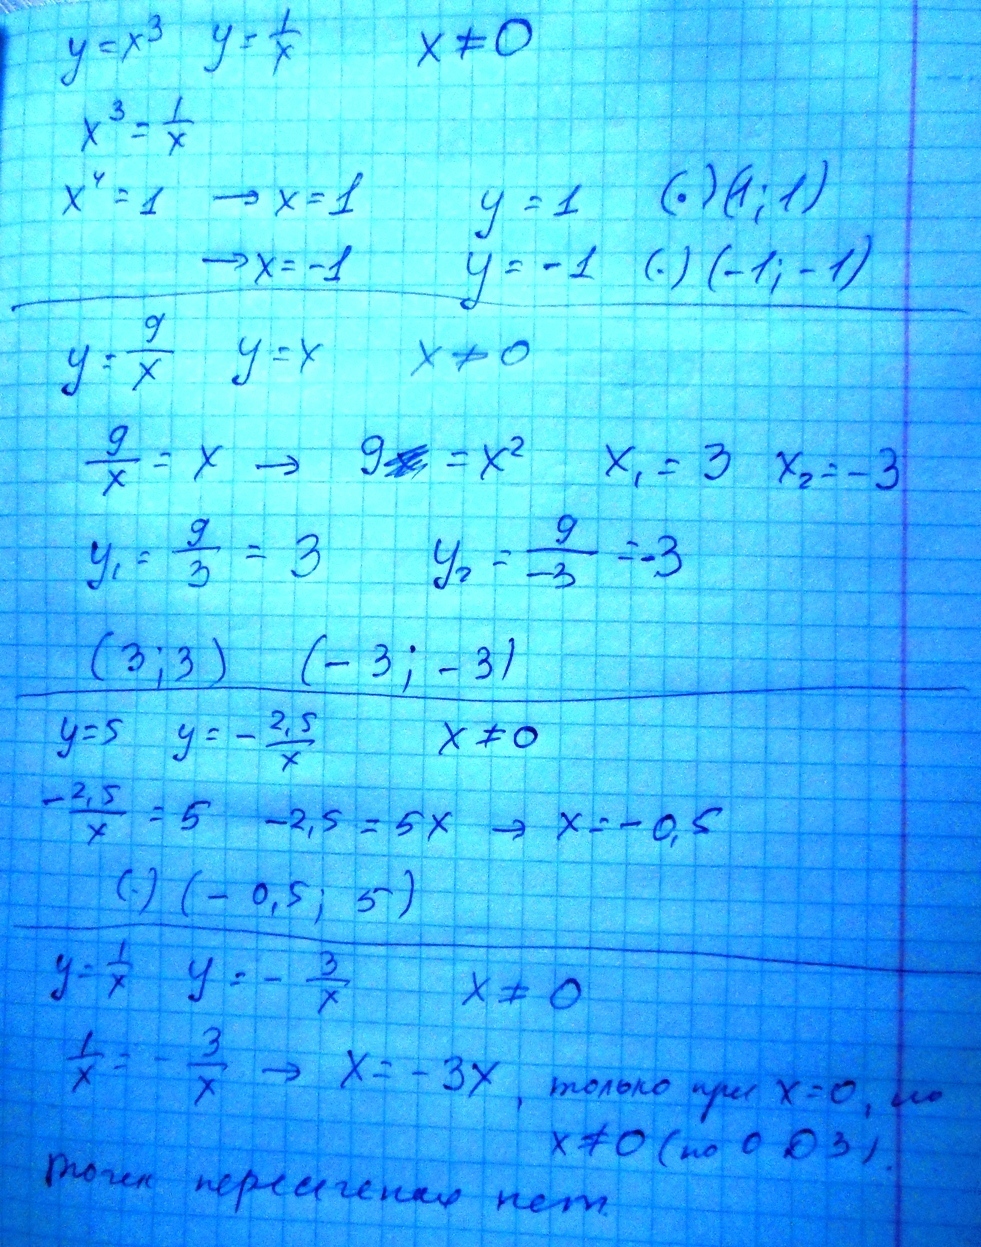 y=x³ y=1/x x≠0
x³=1/x
x⁴=1 →x=1 y=1 (·)(1;1)
→x=-1 y=-1 (·)(-1;-1)
y=9/x y=x x≠0
9/x=x → 9=x² x₁=3 x₂=-3
y₁=9/3=3 y₂=9/-3=-3
(3;3) (-3;-3)
y=5 y=-2,5/x x≠0
-2,5/x=5 -2,5=5x → x=-0,5
(·)(-0,5; 5)
y=1/x y=-3/x x≠0
1/x=-3/x → x=-3x, только при x=0, но
x≠0 (по ОДЗ).
точек пересечения нет.